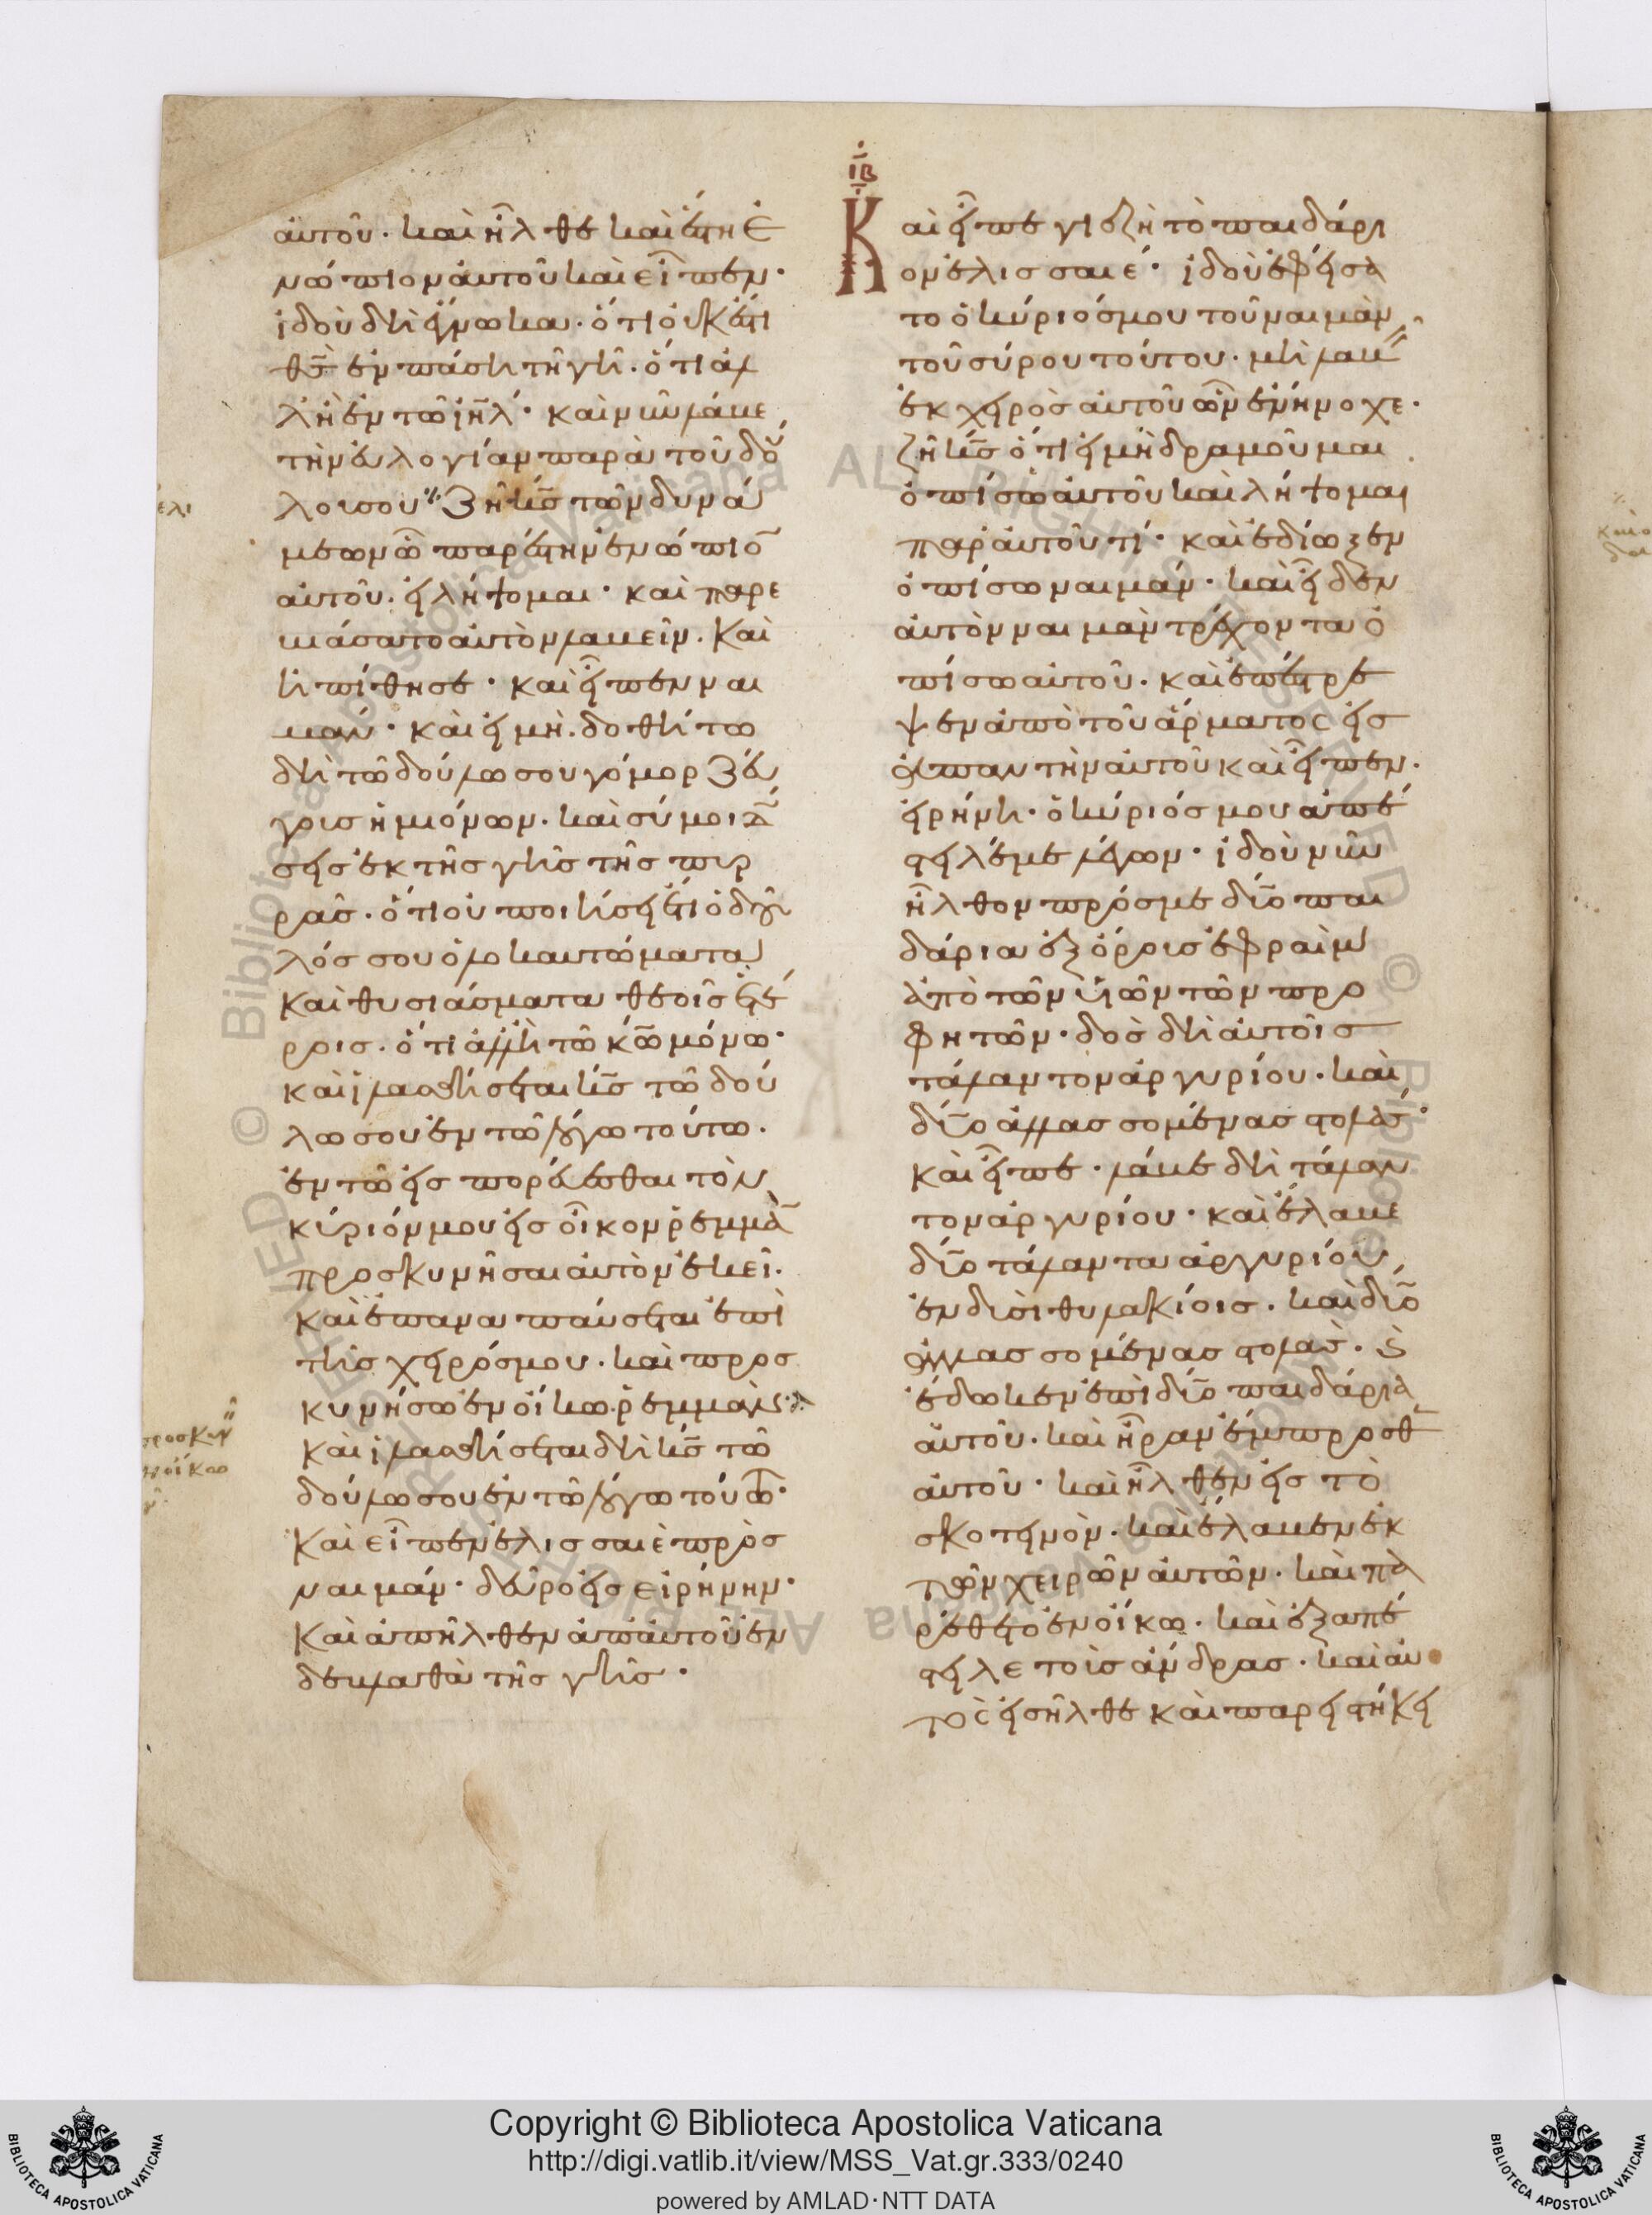 αὐτοῦ· καὶ ἦλθε καὶ ἔστη ἐ
νώπιον αὐτοῦ καὶ εἶπεν·
ἰδοὺ δὴ ἔγνωκα· ὅτι οὐκ ἔστι
θς ἐν πάσῃ τῇ γῇ· ὅτι ἀλ
λ' ἢ ἐν τῶ ιηλ· καὶ νῦν λάβε
τὴν εὐλογίαν παρὰ τοῦ δού
λου σου· ζῆ κς τῶν δυνά
μεων ὧ παρέστην ἐνώπιον
αὐτοῦ· εἰ λήψομαι· καὶ παρε
βιάσατο αὐτὸν λαβεῖν· καὶ
ἠπίθησε· καὶ εἶπεν ναι
μάν· καὶ εἰ μή· δοθήτω
δὴ τῶ δούλω σου γόμορ ζεύ
γοις ἡμιόνων· καὶ σύ μοι δώ
σεις ἐκ τῆς γῆς τῆς πυρ
ρᾶς· ὅτι οὐ ποιήσει ἔτι ὁ δοῦ
λός σου ὁλοκαυτώματα
καὶ θυσιάσματα θεοῖς ἑτέ
ροις· ὅτι ἀλλ' ἢ τῶ κω μόνω·
καὶ ἱλασθήσεται κς τῶ δού
λω σου ἐν τῶ λόγω τούτω·
ἐν τῶ εἰσπορεύεσθαι τὸν
κύριόν μου εἰς οἶκον ῥεμμὰν
προσκυνῆσαι αὐτὸν ἐκεῖ·
καὶ ἐπαναπαύσεται ἐπὶ
τῆς χειρός μου· καὶ προσ
κυνήσω ἐν οἴκω ῥεμμὰν·
καὶ ἱλασθήσεται δὴ κς τῶ
δούλω σου ἐν τῶ λόγω τούτω·
καὶ εἶπεν ἐλισσαιὲ πρὸς
ναιμάν· δεῦρο εἰς εἰρήνην·
καὶ ἀπῆλθεν ἀπ' αὐτοῦ ἐν
δεβλαθὰ τῆς γῆς·
προσκυν
ἐν οἴκω
ιβ
Καὶ εἶπε γιεζὴ τὸ παιδάρι
ον ἐλισσαιέ· ἰδοὺ ἐφείσα
το ὁ κύριός μου τοῦ ναιμὰν
τοῦ σύρου τούτου· μὴ λαβεῖν
ἐκ χειρὸς αὐτοῦ ὧν ἐνήνοχε·
ζῆ κς ὅτι εἰ μὴ δραμοῦμαι
ὀπίσω αὐτοῦ καὶ λήψομαι
παρ' αὐτοῦ τί· καὶ ἐδίωξεν
ὀπίσω ναιμάν· καὶ εἶδεν
αὐτὸν ναιμὰν τρέχοντα ὀ
πίσω αὐτοῦ· καὶ ἐπέστρε
ψεν ἀπὸ τοῦ ἅρματος εἰς
ἀπαντὴν αὐτοῦ καὶ εἶπεν·
εἰρήνη· ὁ κύριός μου ἀπέ
στειλέ με λέγων· ἰδοὺ νῦν
ἦλθον πρός με δύο παι
δάρια ἐξ ὄρους ἐφραὶμ
ἀπὸ τῶν υἱῶν τῶν προ
φητῶν· δὸς δὴ αὐτοῖς
τάλαντον ἀργυρίου· καὶ
δύο ἀλλασσομένας στολάς·
καὶ εἶπε· λάβε δὴ τάλαν
τον ἀργυρίου· καὶ ἔλαβε
δύο τάλαντα ἀργυρίου
ἐν δισὶ θυλακίοις· καὶ δύο
ἀλλασσομένας στολὰς· καὶ
ἔδωκεν ἐπὶ δύο παιδάρια
αὐτοῦ· καὶ ἦραν ἔμπροσθεν
αὐτοῦ· καὶ ἦλθεν εἰς τὸ
σκοτεινόν· καὶ ἔλαβεν ἐκ
τῶν χειρῶν αὐτῶν· καὶ πα
ρέθετο ἐν οἴκω· καὶ ἐξαπέ
στειλε τοὺς ἄνδρας· καὶ αὐ
τὸς εἰσῆλθε καὶ παρειστήκει
Copyright © Biblioteca Apostolica Vaticana
http://digi.vatlib.it/view/MSS_Vat.gr.333/0240
powered by AMLAD·NTT DATA
BIBLIOTECA APOSTOLICA VATICANA
BIBLIOTECA APOSTOLICA VATICANA